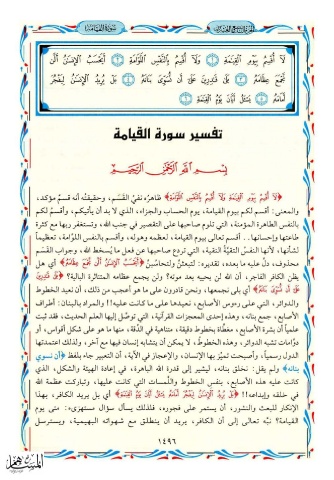 سورة القيامة
لَا أُقْسِمُ بِيَوْمِ الْقِيَامَةِ ① وَلَا أُقْسِمُ بِالنَّفْسِ اللَّوَّامَةِ ② أَيَحْسَبُ الْإِنْسَانُ أَلَّن
نَجْمَعَ عِظَامَهُ ③ بَلَى قَادِرِينَ عَلَى أَن نُّسَوِّيَ بَنَانَهُ ④ بَلْ يُرِيدُ الْإِنْسَانُ لِيَفْجُرَ
أَمَامَهُ ⑤ يَسْأَلُ أَيَّانَ يَوْمُ الْقِيَامَةِ ⑥
تفسير سورة القيامة
بِسْمِ اللهِ الرَّحْمَنِ الرَّحِيمِ
﴿لَا أُقْسِمُ بِيَوْمِ الْقِيَامَةِ وَلَا أُقْسِمُ بِالنَّفْسِ اللَّوَّامَةِ﴾ ظاهرُه نفيُ القَسَم، وحقيقتُه أنه قسمٌ مؤكد،
والمعنى: أقسم لكم بيوم القيامة، يوم الحساب والجزاء، الذي لا بد أن يأتيكم، وأقسم لكم
بالنفس الطاهرة المؤمنة، التي تلوم صاحبها على التقصير في جنب الله، وتستغفر ربها مع كثرة
طاعتها وإحسانها.. أقسم تعالى بيوم القيامة، لعظمه وهوله، وأقسم بالنفس اللوَّامة، تعظيماً
لشأنها، لأنها النفسُ التقيَّة النقية، التي تردع صاحبها عن فعل ما يُسخط الله، وجواب القسم
محذوف، دلَّ عليه ما بعده، تقديره: لتبعثنَّ ولتحاسبُنَّ ﴿أَيَحْسَبُ الْإِنْسَانُ أَلَّن نَجْمَعَ عِظَامَهُ﴾ أي هل
يظن الكافر الفاجر، أن الله لن يحييه بعد موته؟ ولن يجمع عظامه المتناثرة البالية؟ ﴿بَلَى قَادِرِينَ
عَلَى أَن نُّسَوِّيَ بَنَانَهُ﴾ أي بلى نجمعها، ونحن قادرون على ما هو أعجب من ذلك، أن نعيد الخطوط
والدوائر، التي على رءوس الأصابع، نعيدها على ما كانت عليه!! والمراد بالبنان: أطراف
الأصابع، جمع بنانه، وهذه إحدى المعجزات القرآنية، التي توصَّل إليها العلم الحديث، فقد ثبت
علمياً أن بشرة الأصابع، مغطَّاة بخطوط دقيقة، متناهية في الدِّقة، منها ما هو على شكل أقواس، أو
دوَّامات تشبه الدوائر، وهذه الخطوطُ، لا يمكن أن يتشابه إنسان فيها مع آخر، ولذلك اعتمدتها
الدول رسمياً، وأصبحت تميِّز بها الإنسان، والإعجازُ في الآية، أن التعبير جاء بلفظ ﴿أن نسوي
بنانه﴾ ولم يقل: نخلق بنانه، ليشير إلى قدرة الله الباهرة، في إعادة الهيئة والشكل، الذي
كانت عليه هذه الأصابع، بنفس الخطوط والبَّصمات التي كانت عليها، وتباركت عظمة الله
في خلقه وإبداعه!! ﴿بَلْ يُرِيدُ الْإِنْسَانُ لِيَفْجُرَ أَمَامَهُ يَسْأَلُ أَيَّانَ يَوْمُ الْقِيَامَةِ﴾ أي بل يريد الكافر، بهذا
الإنكار للبعث والنشور، أن يستمر على فجوره، فلذلك يسأل سؤال مستهزىء: متى يوم
القيامة؟ نبَّه تعالى إلى أن الكافر، يريد أن ينطلق مع شهواته البهيمية، ويسترسل
١٤٩٦